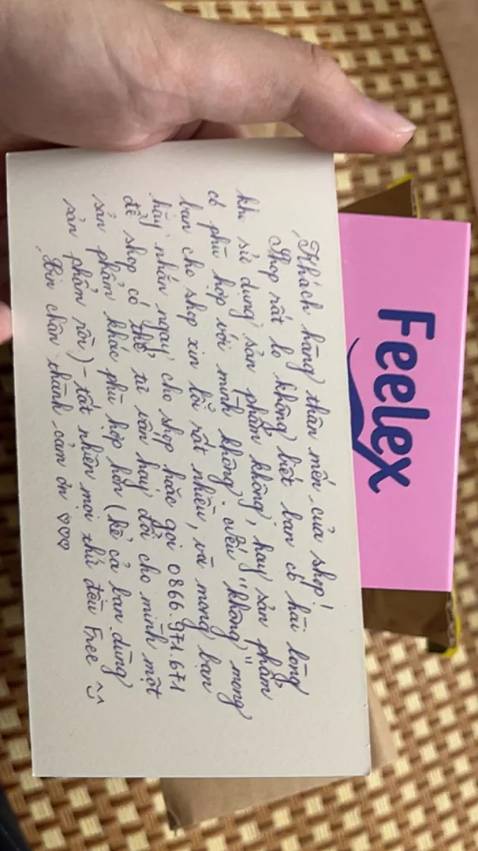 Khách hàng thân mến của shop!
Shop rất lo không biết bạn có hài lòng
khi sử dụng sản phẩm không, hay sản phẩm
có phù hợp với mình không. Nếu "không" mong
bạn cho shop xin lỗi rất nhiều, và mong bạn
hãy nhắn ngay cho shop hoặc gọi 0866.971.671
để shop có thể tư vấn hay đổi cho mình một
sản phẩm khác phù hợp hơn (kể cả bạn dùng
sản phẩm rồi) - tất nhiên mọi thứ đều Free
Xin chân thành cảm ơn ♡♡♡
Feelex